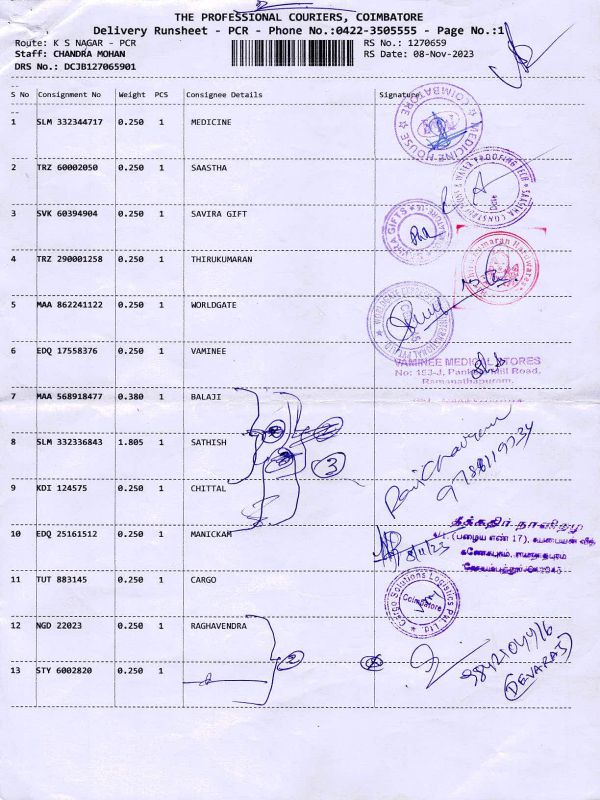 THE PROFESSIONAL COURIERS, COIMBATORE
Delivery Runsheet - PCR - Phone No.:0422-3505555 - Page No.:1
Route: K S NAGAR - PCR
RS No.: 1270659
Staff: CHANDRA MOHAN
RS Date: 08-Nov-2023
DRS No.: DCJB127065901
S No Consignment No Weight PCS Consignee Details Signature
1 SLM 332344717 0.250 1 MEDICINE
MEDICINE HOUSE ★ COIMBATORE ★
2 TRZ 60002050 0.250 1 SAASTHA
Date
3 SVK 60394904 0.250 1 SAVIRA GIFT
4 TRZ 290001258 0.250 1 THIRUKUMARAN
5 MAA 862241122 0.250 1 WORLDGATE
6 EDQ 17558376 0.250 1 VAMINEE
VAMINEE MEDICAL STORES
No: 193-J, Mill Road,
Ramanathapuram,
7 MAA 568918477 0.380 1 BALAJI
8 SLM 332336843 1.805 1 SATHISH
3
Ravichandran
9788119234
9 KDI 124575 0.250 1 CHITTAL
10 EDQ 25161512 0.250 1 MANICKAM
8/11/23
தீக்கதிர் நாளிதழ்
11 TUT 883145 0.250 1 CARGO
Cargo Solutions Logistics Pvt. Ltd. ★
Coimbatore
12 NGD 22023 0.250 1 RAGHAVENDRA
2
13 STY 6002820 0.250 1
9842104416
(DEVARAJ)